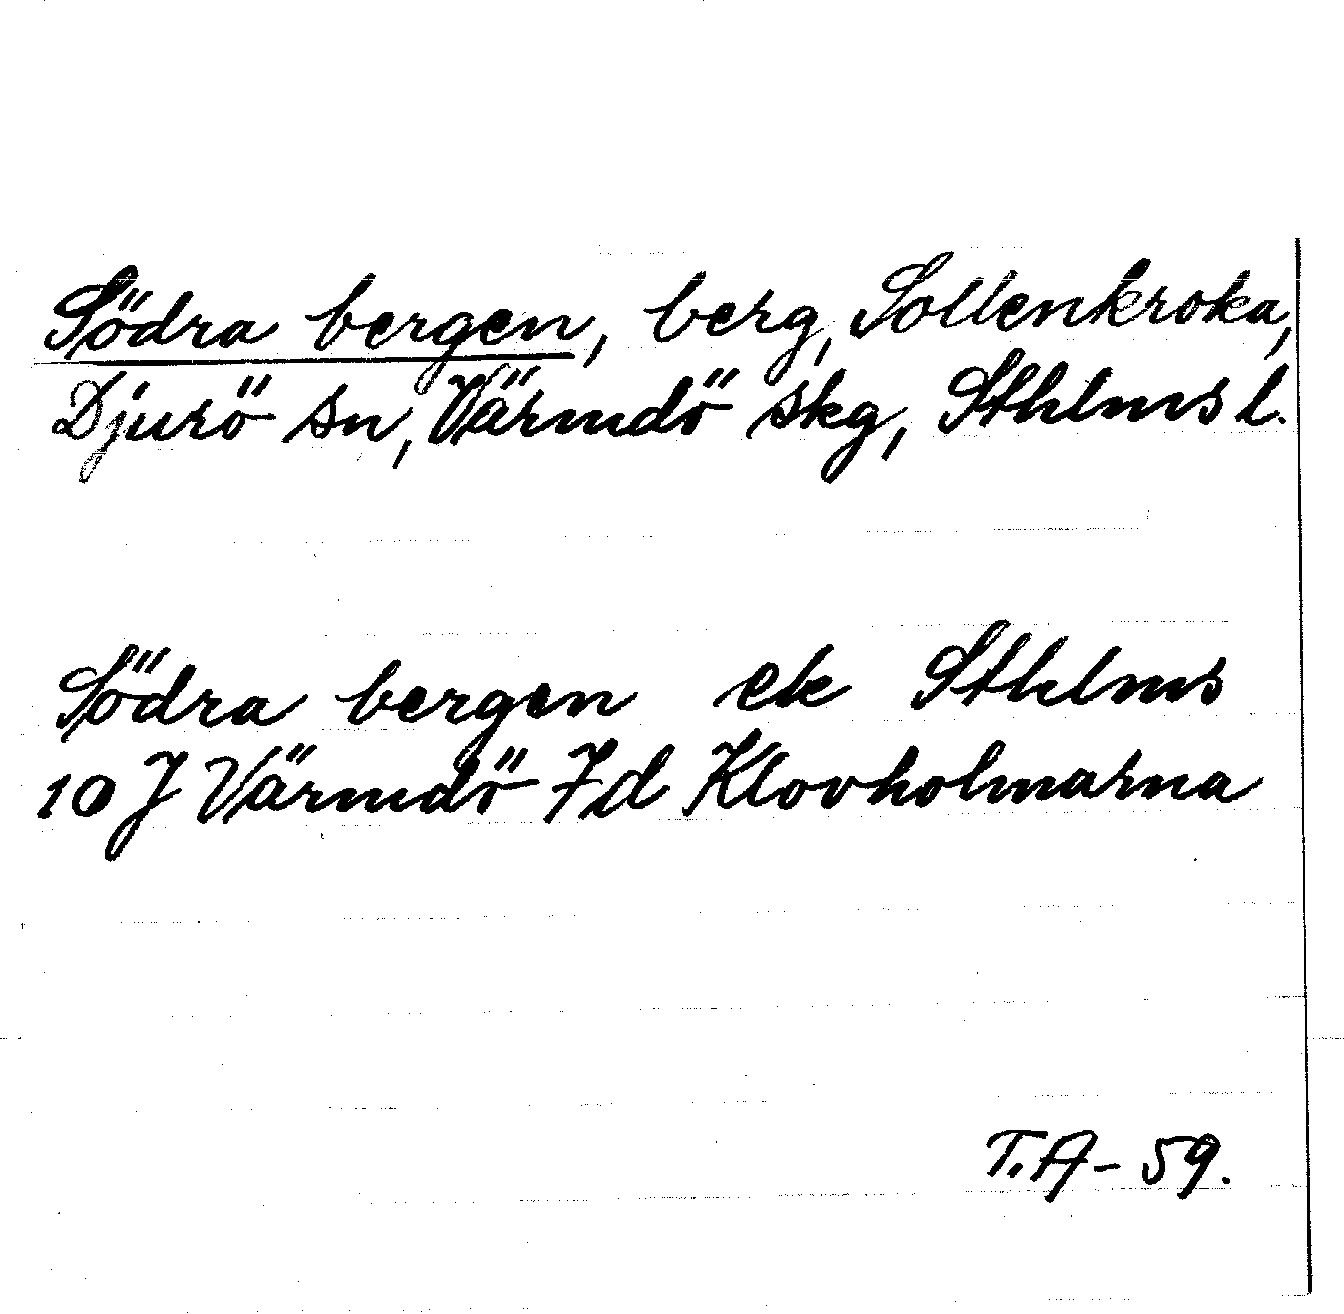 Södra bergen, berg, Sollenkroka,
Djurö sn, Värmdö skg, Sthlms l.
Södra bergen ek Sthlms
10 J Värmdö 7d Klovholmarna
T.A-59.